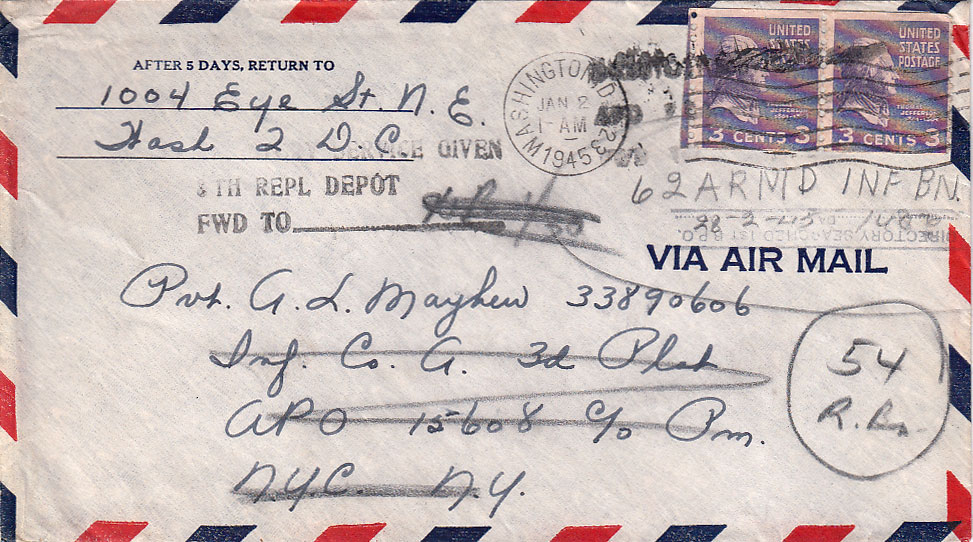 AFTER 5 DAYS, RETURN TO
1004 Eye St. N.E.
Wash 2 D.C.
SERVICE GIVEN
TH REPL DEPOT
FWD TO
WASHINGTON, D.C. 23
JAN 2
1-AM
1945
UNITED STATES
3 CENTS 3
UNITED STATES POSTAGE
3 CENTS 3
62 ARMD INF BN.
DIRECTORY SEARCHED 1ST B.P.O.
VIA AIR MAIL
Pvt. A. L. Mayhew 33890606
Inf. Co. A. 3d Plat
APO 15608 c/o Pm.
N.Y.C. N.Y.
54
R. Bn.